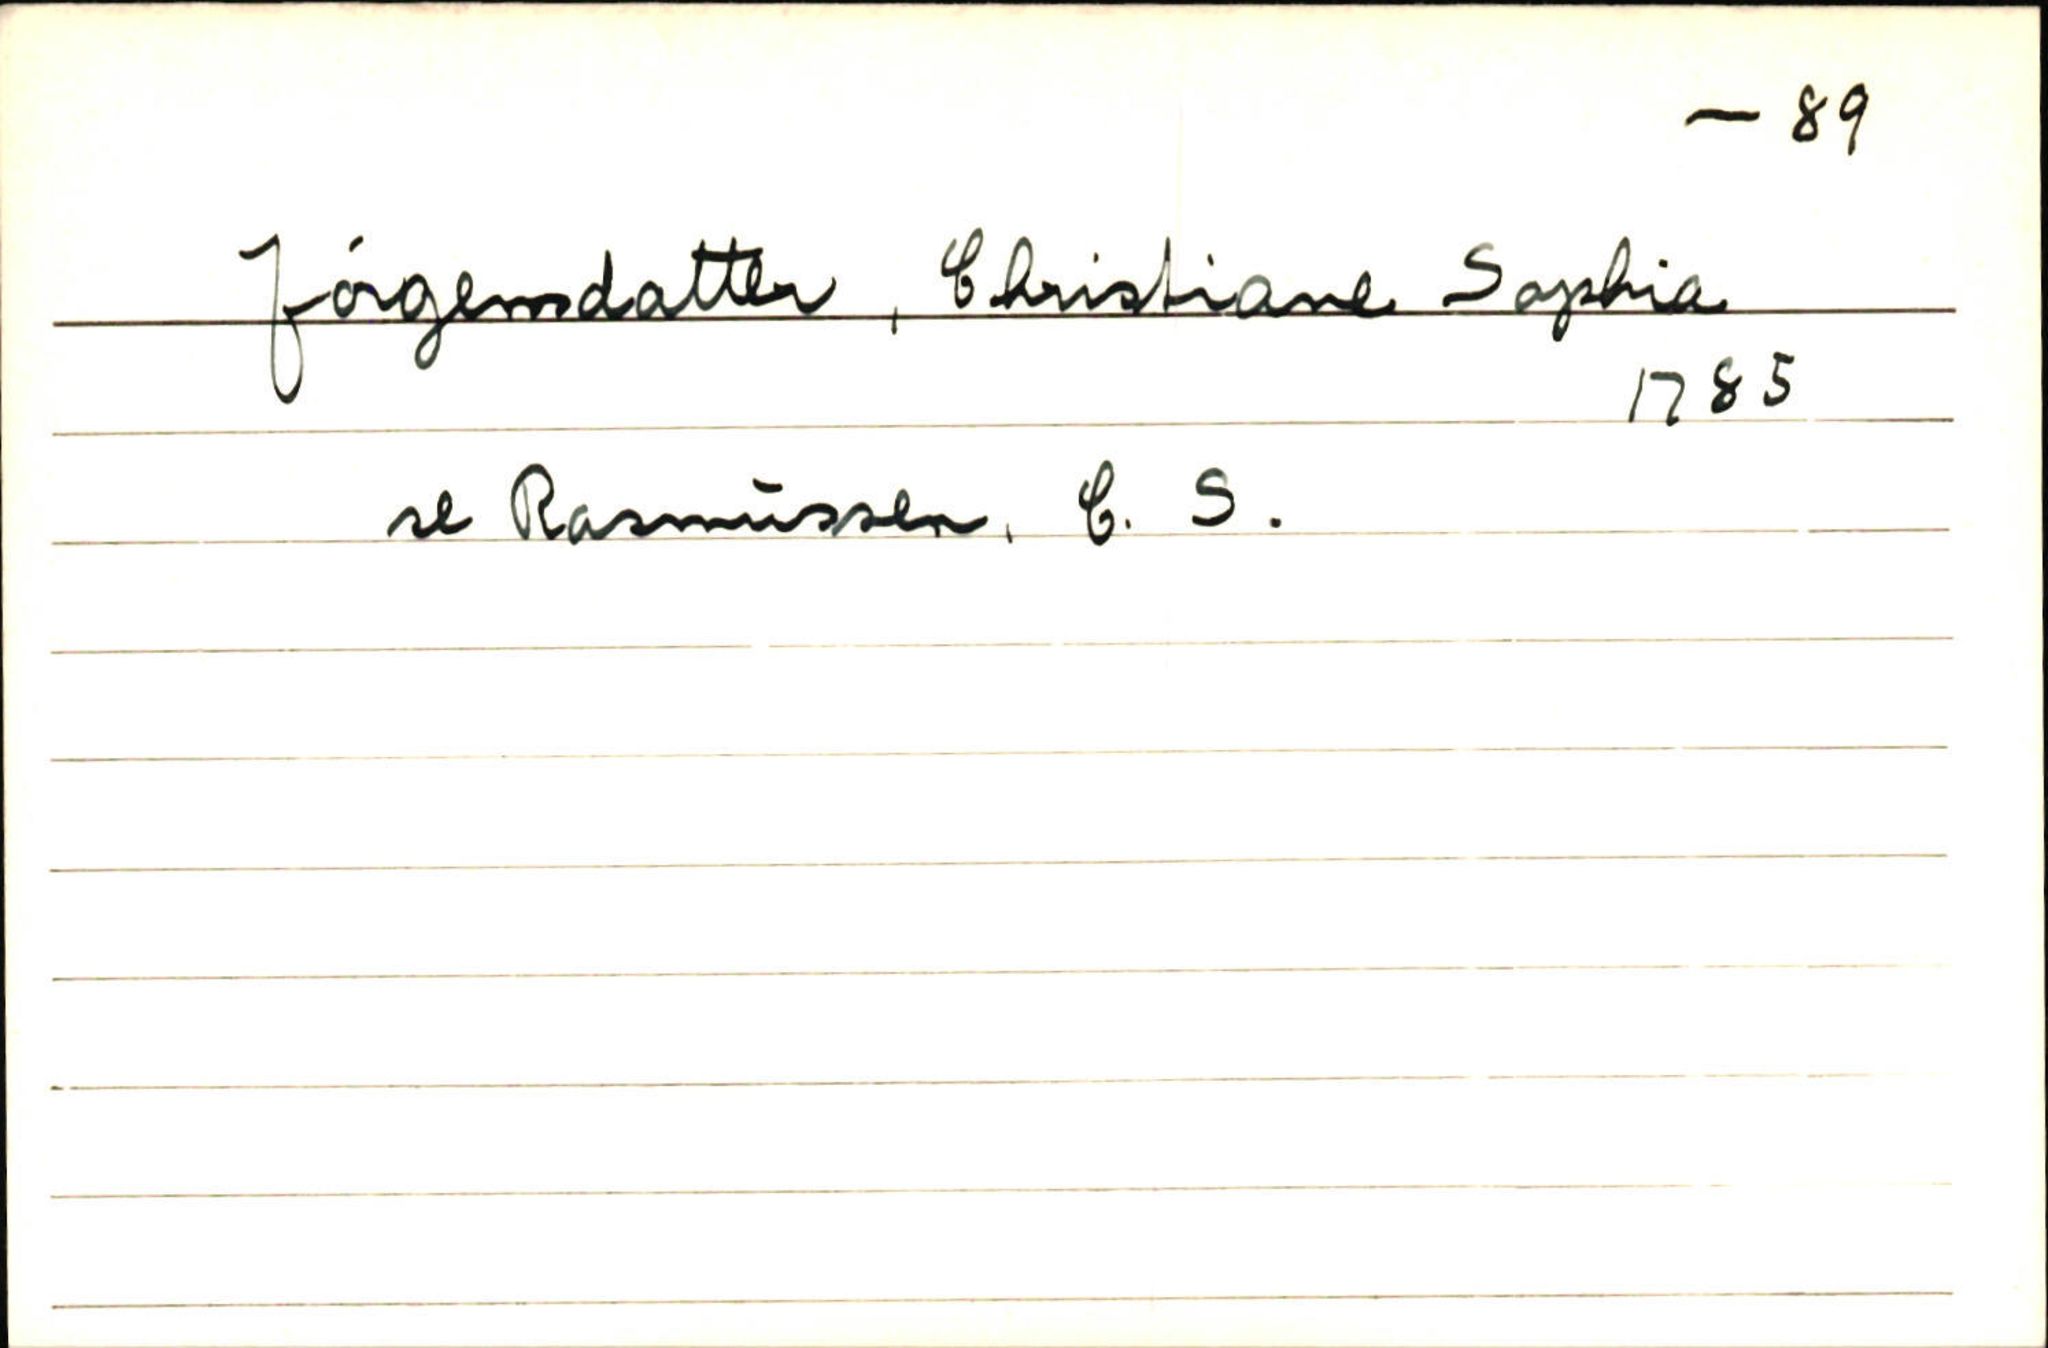 — 89
Jórgensdatter, Christiane Sophia
1785
se Rasmussen, C. S.